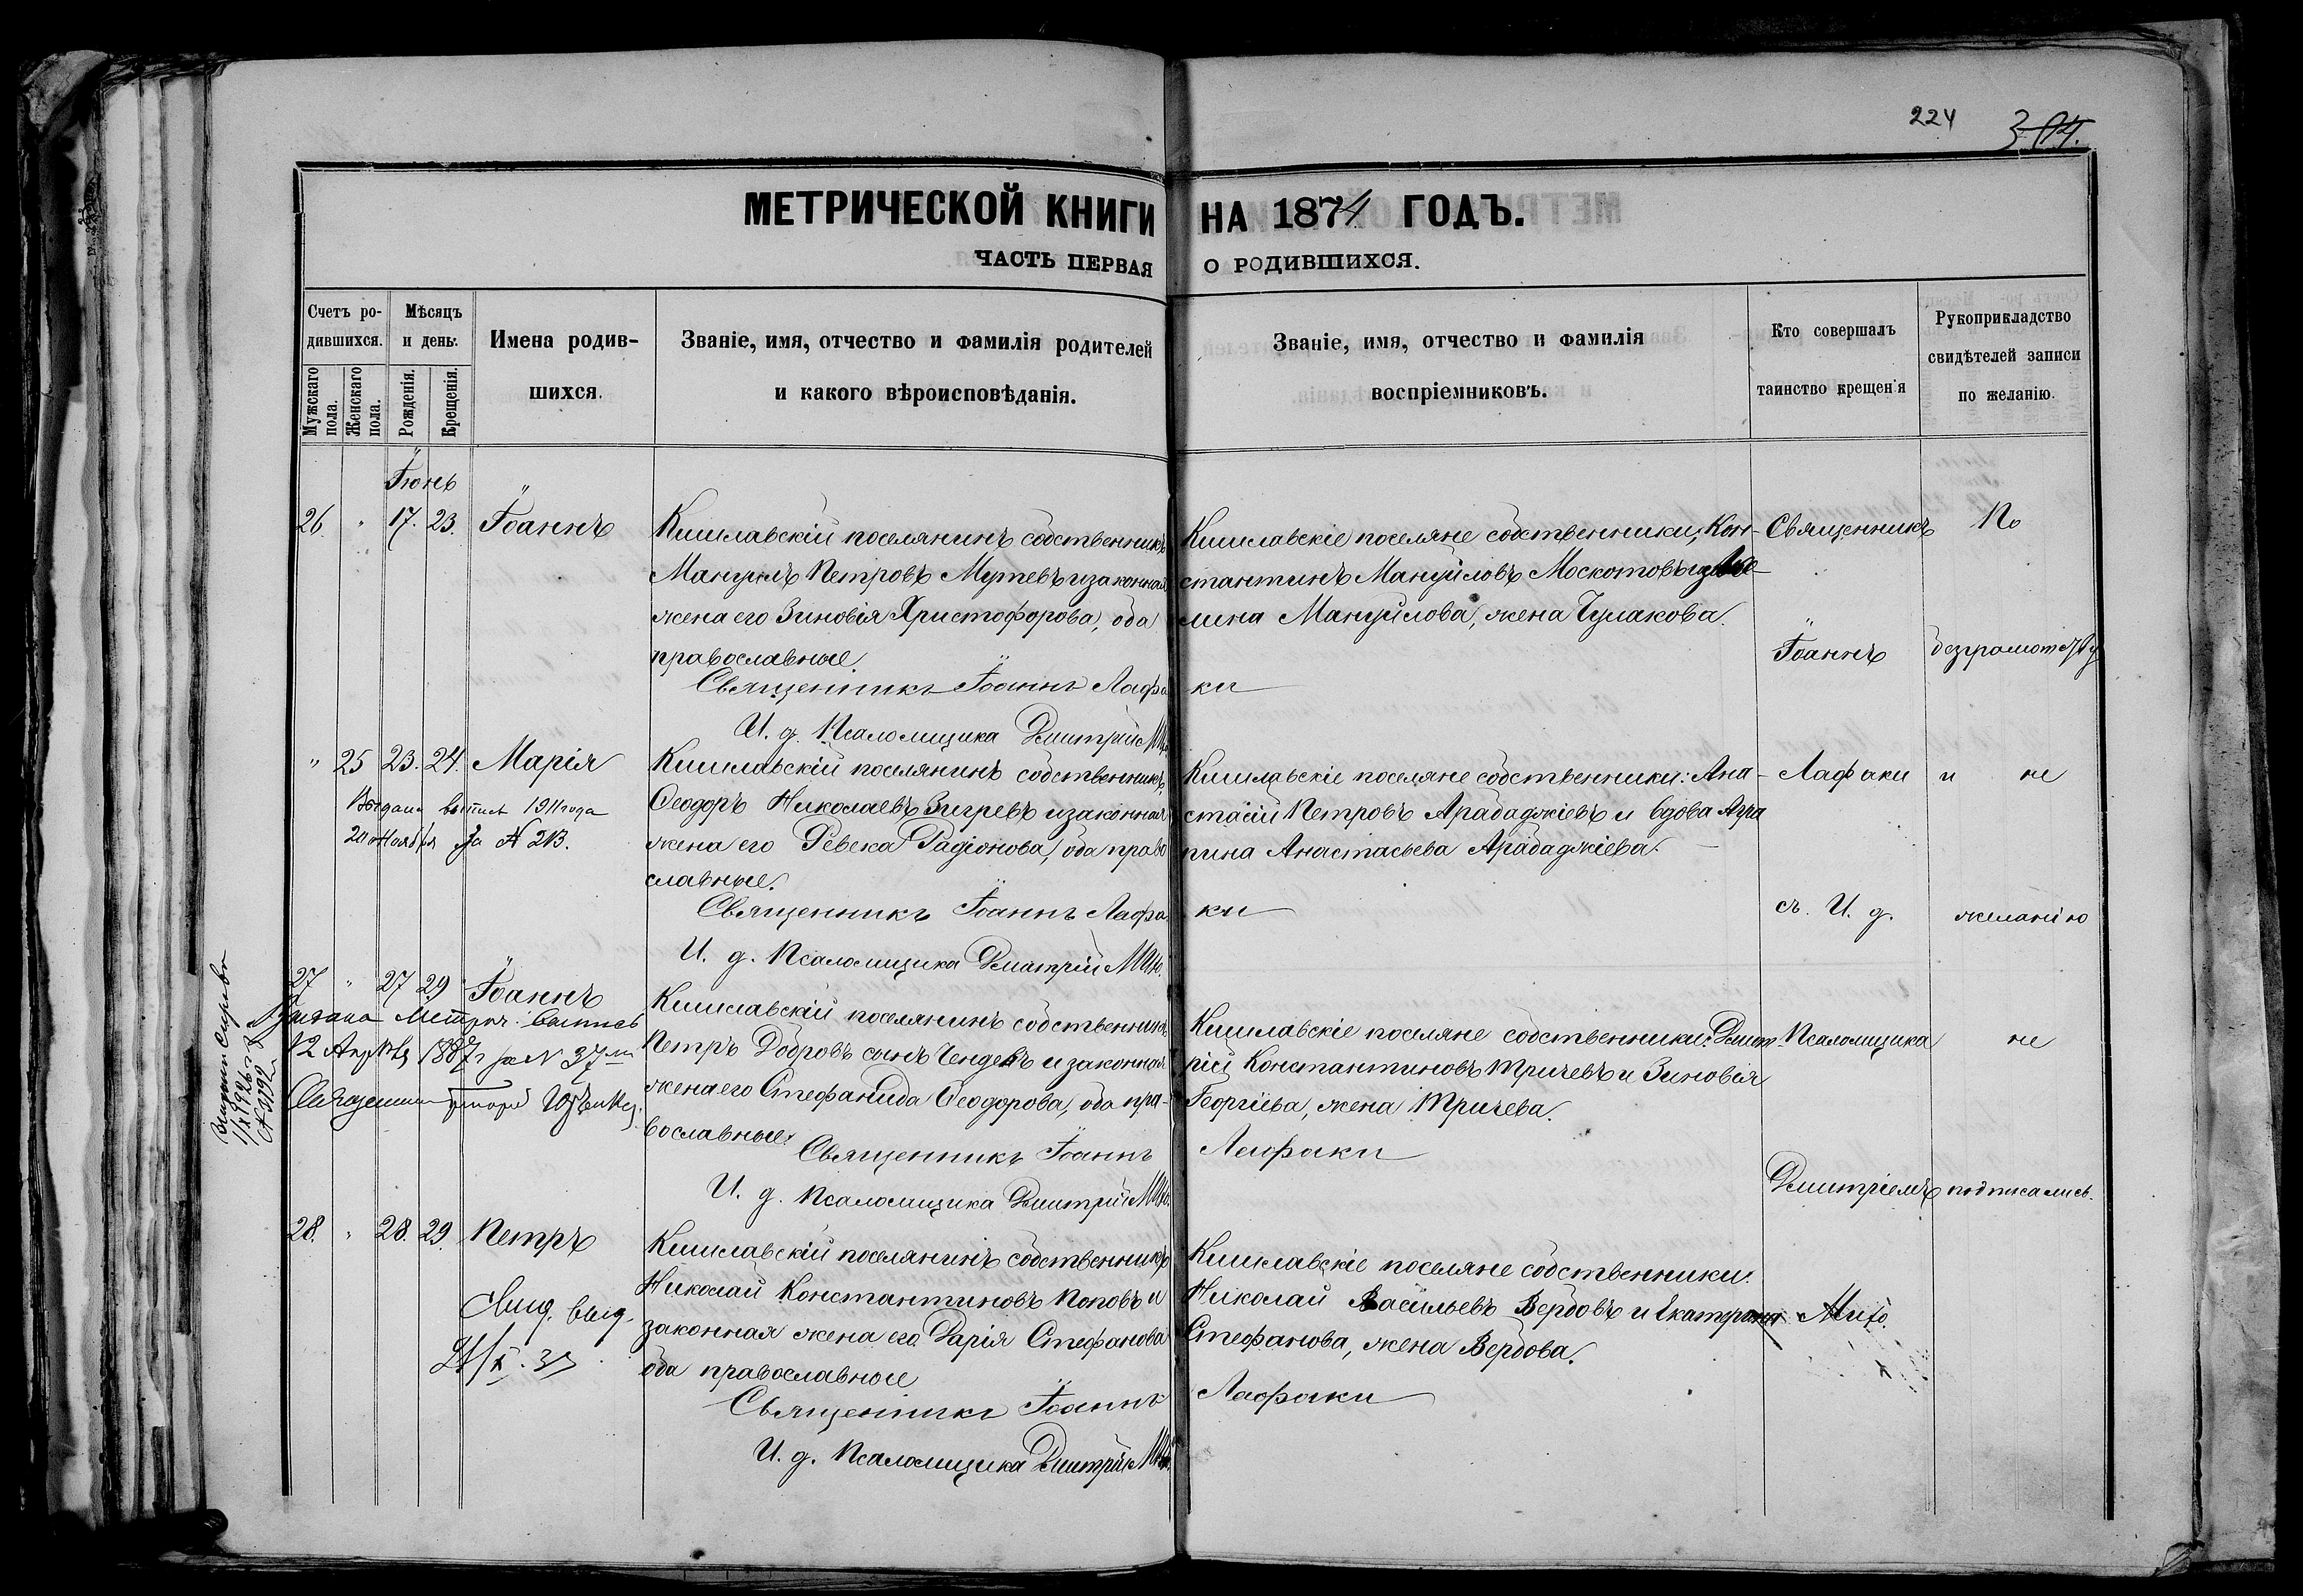 224
304.
МЕТРИЧЕСКОЙ КНИГИ НА 1874 ГОДЪ.
ЧАСТЬ ПЕРВАЯ О РОДИВШИХСЯ.
Счетъ ро-
дившихся.
Мужскаго пола.
Женскаго пола.
Мѣсяцъ
и день.
Рожденія.
Крещенія.
Имена родив-
шихся.
Званіе, имя, отчество и фамилія родителей
и какого вѣроисповѣданія.
Званіе, имя, отчество и фамилія
воспріемниковъ.
Кто совершалъ
таинство крещенія
Рукоприкладство
свидѣтелей записи
по желанію.
Іюнь
26. " 17. 23. Іоаннъ
Кишлавскій поселянинъ собственникъ
Мануилъ Петровъ Мутевъ и законная
жена его Зиновія Христофорова, оба
православные.
Священникъ Іоаннъ Лафаки
И. д. Псаломщика Дмитрій
Кишлавскіе поселяне собственники, Кон-
стантинъ Мануйловъ Москотовъ и
лина Мануйлова, жена Чулакова.
Священникъ
Іоаннъ
По
безграмотству
" 25 23. 24. Марія
Выдана выпись 1911 года
20 Ноября за № 213.
Кишлавскій поселянинъ собственникъ,
Ѳеодоръ Николаевъ Зигревъ и законная
жена его Ревека Радіонова, оба право
славные.
Священникъ Іоаннъ Лафаки
И. д. Псаломщика Дмитрій
Кишлавскіе поселяне собственники: Ана-
стасій Петровъ Арабаджіевъ и вдова Агра
пина Анастасьева Арабаджіева.
Лафаки
съ. И. д.
и не
желанію
27 " 27 29 Іоаннъ
Выдана Метрич. выпись
12 Апрѣля 1887 г за N 37
Священник
1/X 1926 г
№ 3192
Кишлавскій поселянинъ собственникъ,
Петръ Добровъ сынъ Чендевъ и законная
жена его Стефанида Ѳеодорова, оба пра-
вославные.
Священникъ Іоаннъ Лафаки
И. д. Псаломщика Дмитрій
Кишлавскіе поселяне собственники: Дмит-
рій Константиновъ Тричевъ и Зиновія
Георгіева, жена Тричева.
Псаломщика
Дмитріемъ
не
подписались.
28. " 28. 29. Петръ
Свид. выд.
Кишлавскій поселянинъ собственникъ
Николай Константиновъ Поповъ и
законная жена его Дарія Стефанова
оба православные
Священникъ Іоаннъ Лафаки
И. д. Псаломщика Дмитрій
Кишлавскіе поселяне собственники:
Николай Васильевъ Вербовъ и Екатерина
Стефанова, жена Вербова.